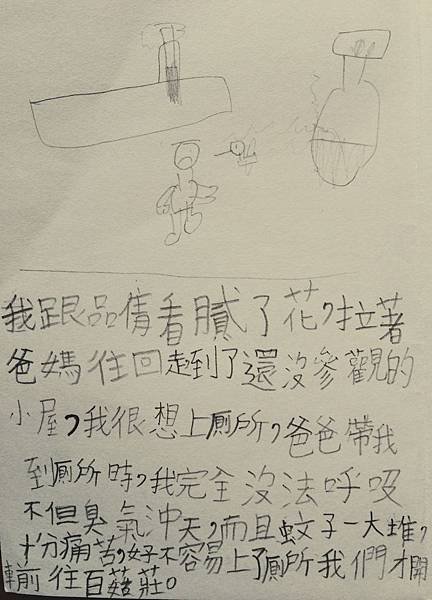 我跟品倩看膩了花，拉著
爸媽往回走到了還沒參觀的
小屋，我很想上廁所，爸爸帶我
到廁所時，我完全沒法呼吸
不但臭氣沖天，而且蚊子一大堆，
十分痛苦，好不容易上了廁所我們才開
車前往百菇莊。